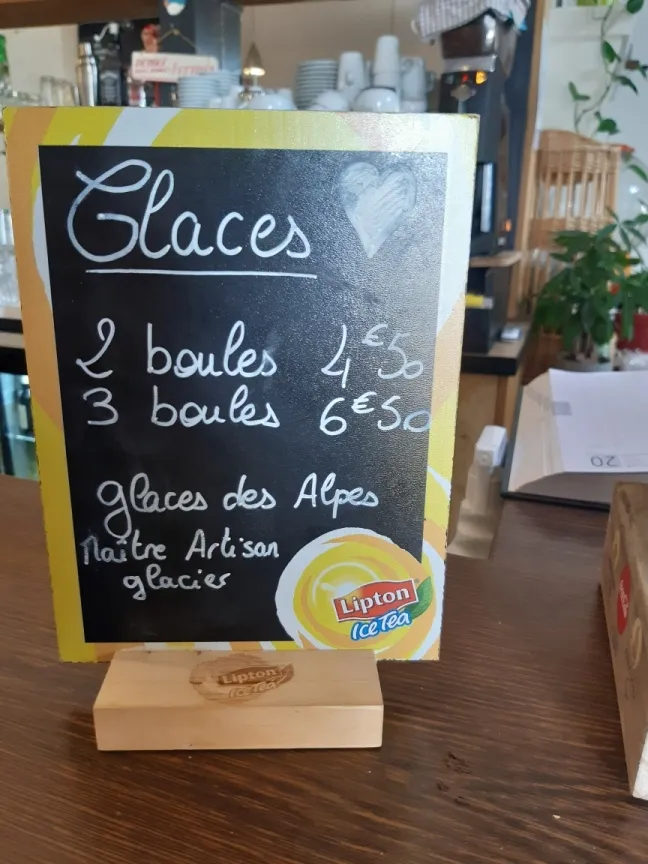 Glaces
2 boules 4€50
3 boules 6€50
glaces des Alpes
Maître Artisan
glacier
Lipton
Ice Tea
Lipton
Ice Tea
20